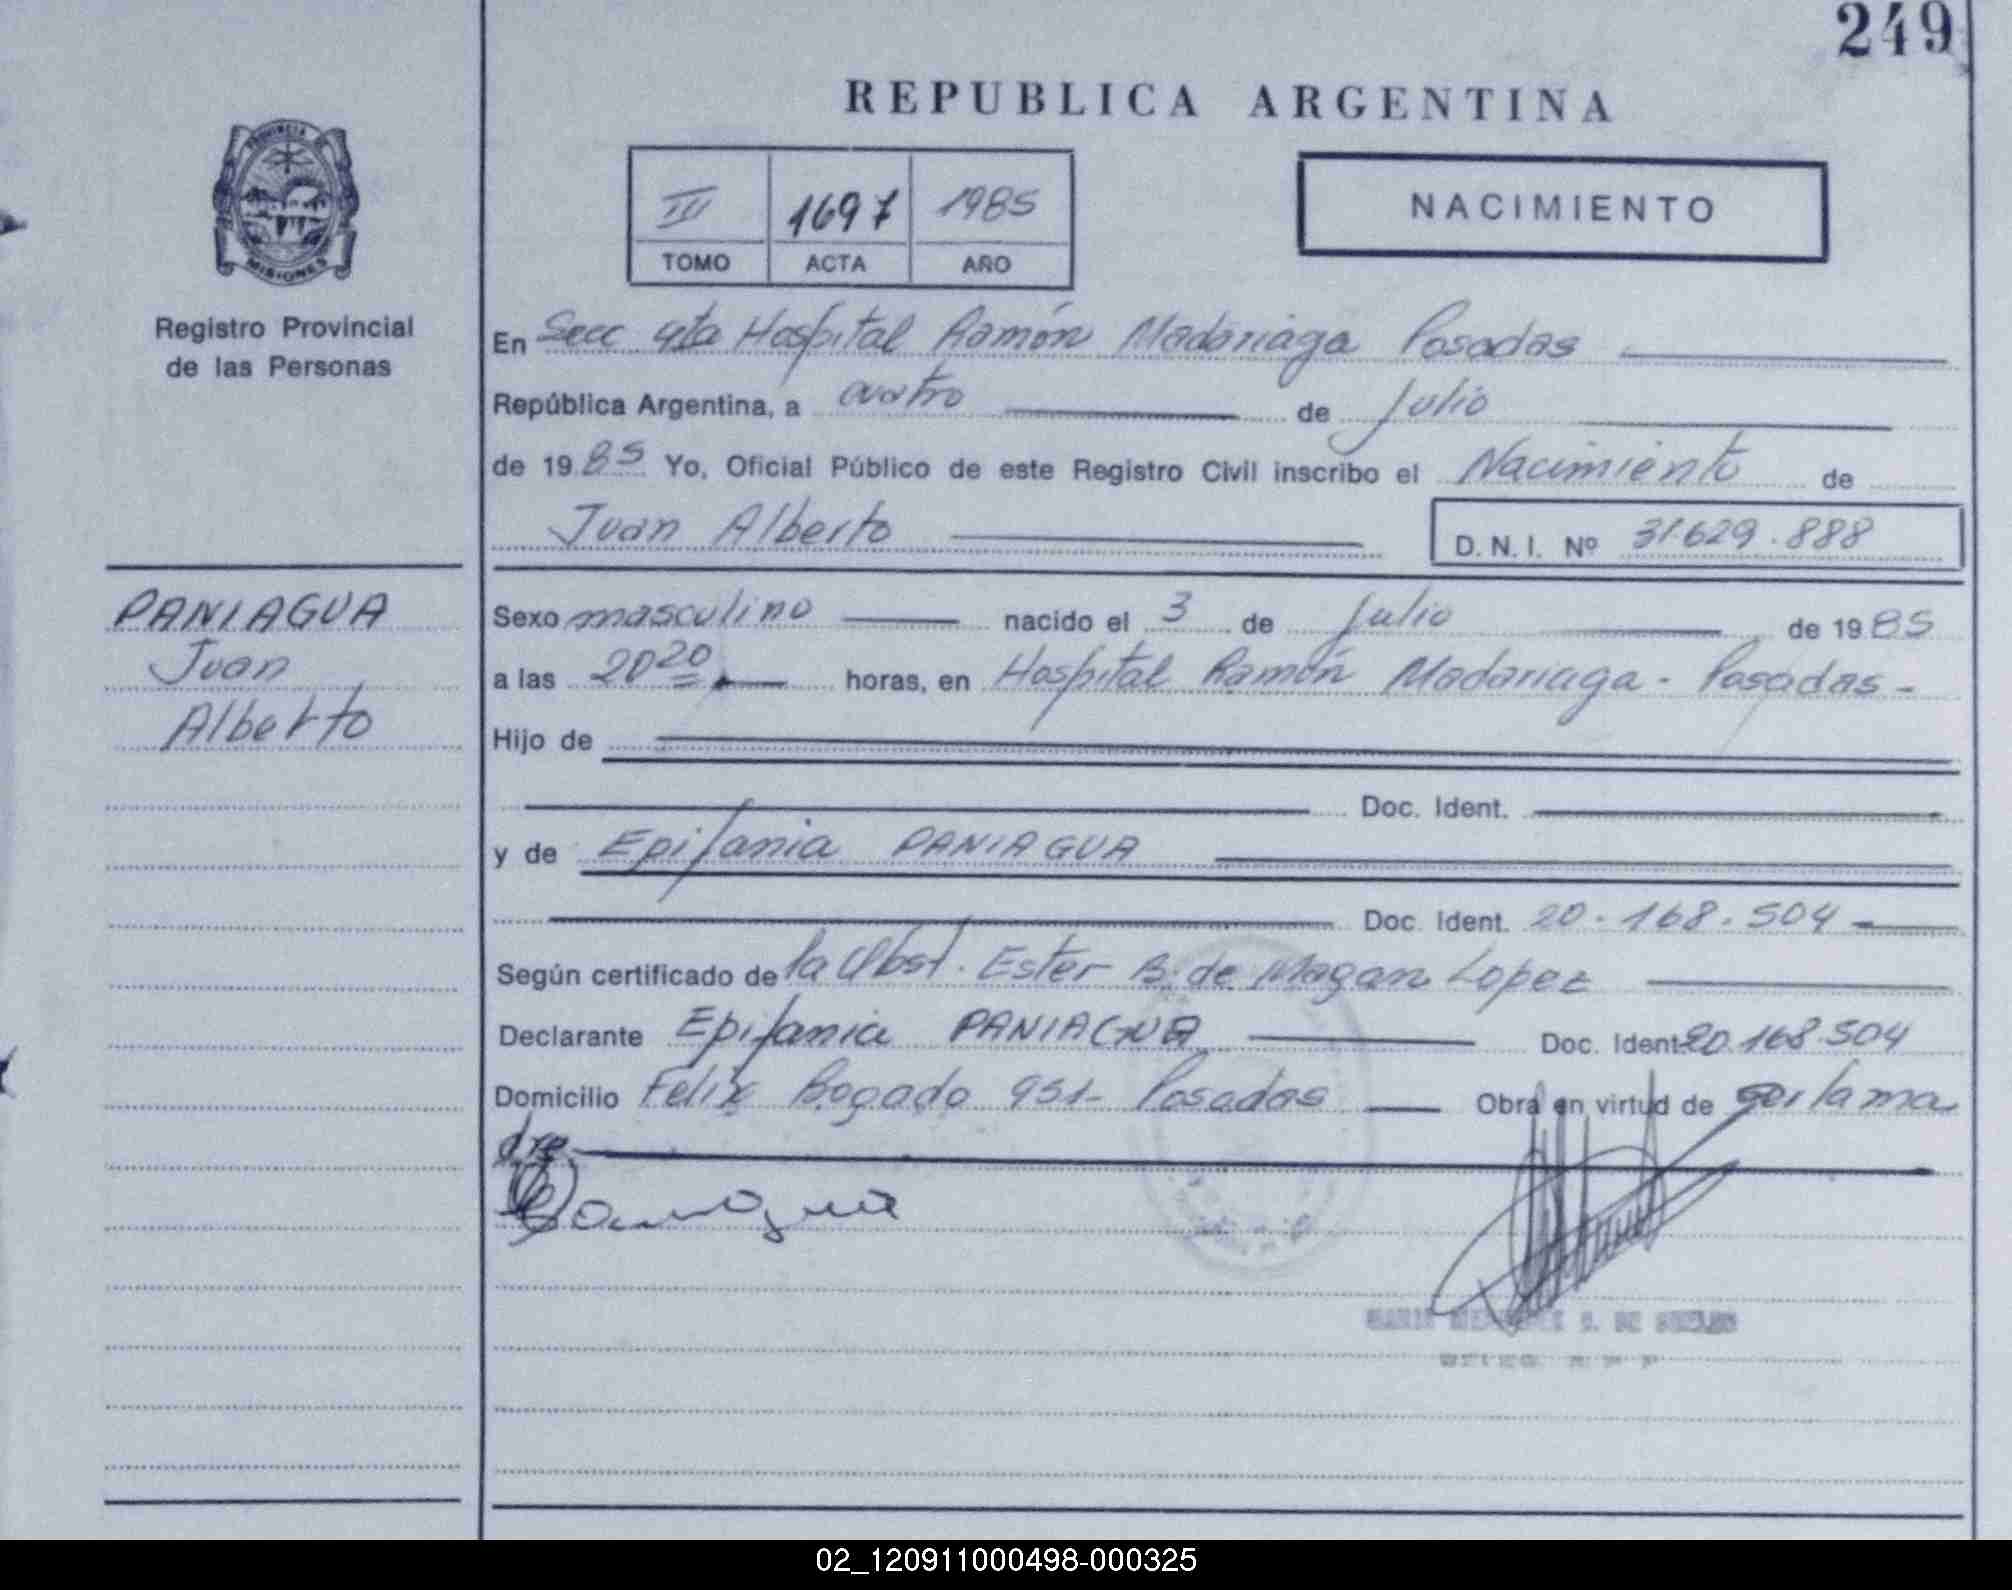 249
REPUBLICA ARGENTINA
PROVINCIA DE
MISIONES
III 1697 1985
TOMO ACTA AÑO
NACIMIENTO
Registro Provincial
de las Personas
En Secc 4ta Hospital Ramón Madariaga Posadas
República Argentina, a cuatro de Julio
de 1985 Yo, Oficial Público de este Registro Civil inscribo el Nacimiento de
Juan Alberto D. N. I. Nº 31.629.888
PANIAGUA
Juan
Alberto
Sexo masculino nacido el 3 de Julio de 1985
a las 20 20 horas, en Hospital Ramón Madariaga - Posadas -
Hijo de
Doc. Ident.
y de Epifania PANIAGUA
Doc. Ident. 20.168.504
Según certificado de la Obst. Ester B. de Magan Lopez
Declarante Epifania PANIAGUA Doc. Ident. 20.168.504
Domicilio Felix Bogado 951- Posadas Obra en virtud de ser la ma
dre
Paniagua
02_120911000498-000325